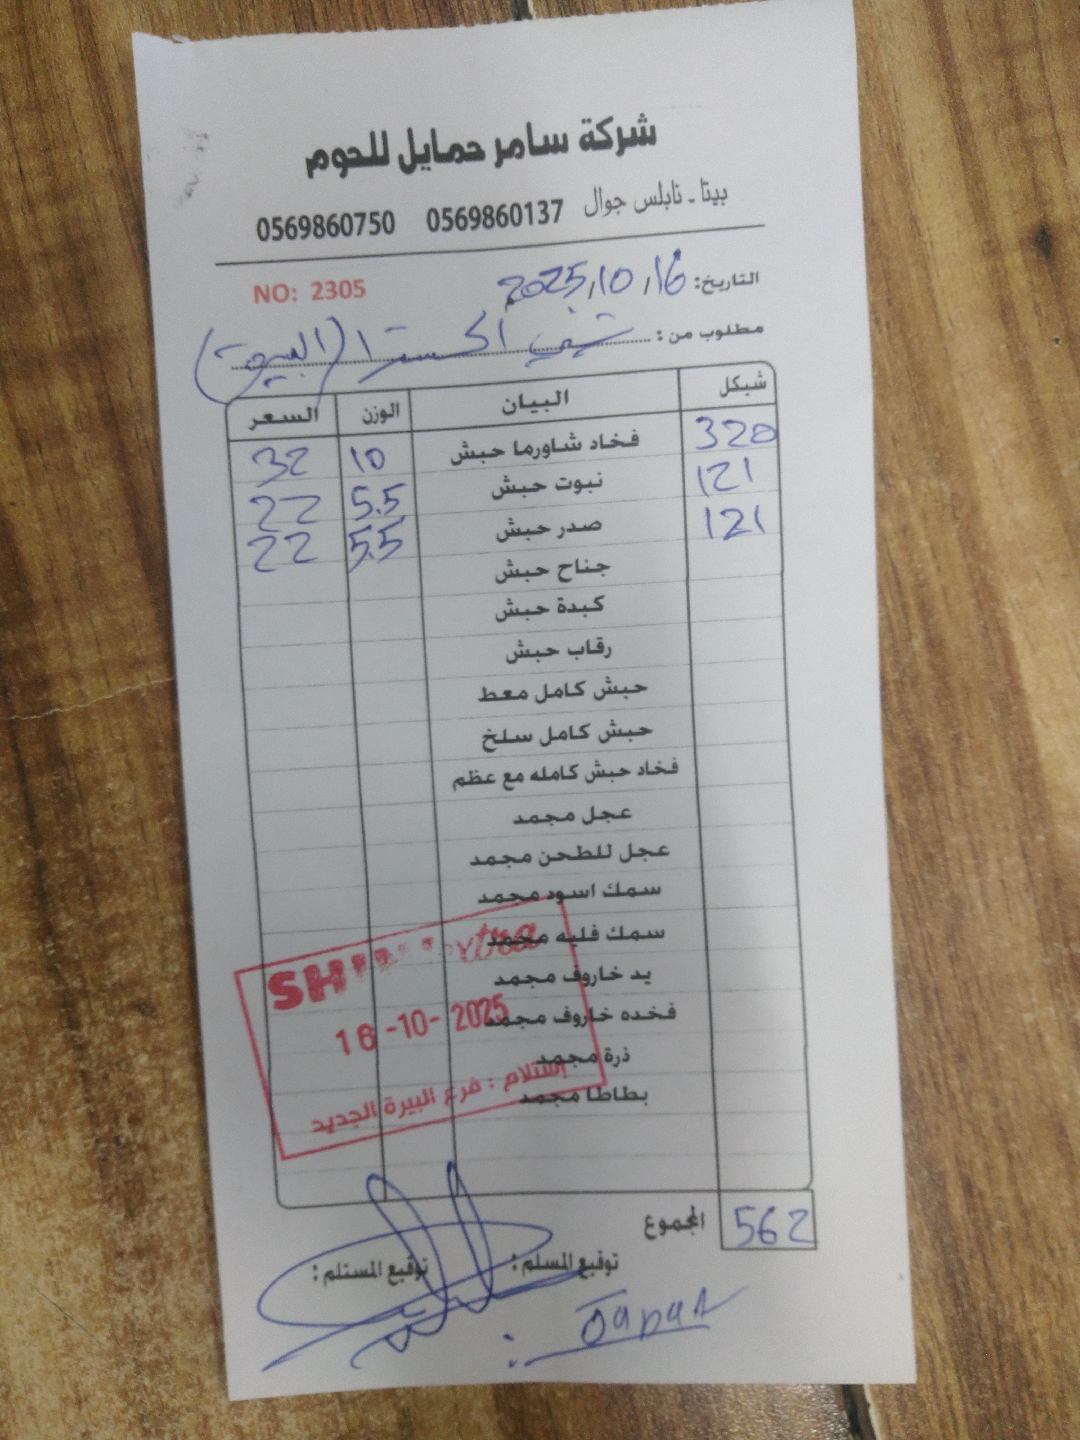 شركة سامر حمايل للحوم
بيتا - نابلس جوال 0569860137 0569860750
التاريخ: 2025,10,16
NO: 2305
مطلوب من : شيبي اكسترا (البيرة)
شيكل البيان الوزن السعر
320 فخاد شاورما حبش 10 32
121 نبوت حبش 5.5 22
121 صدر حبش 5.5 22
جناح حبش
كبدة حبش
رقاب حبش
حبش كامل معط
حبش كامل سلخ
فخاد حبش كامله مع عظم
عجل مجمد
عجل للطحن مجمد
سمك اسود مجمد
سمك فليه مجمد
يد خاروف مجمد
فخده خاروف مجمد
ذرة مجمد
بطاطا مجمد
extra
16-10-2025
استلام : فرع البيرة الجديد
المجموع 562
توقيع المسلم : توقيع المستلم :